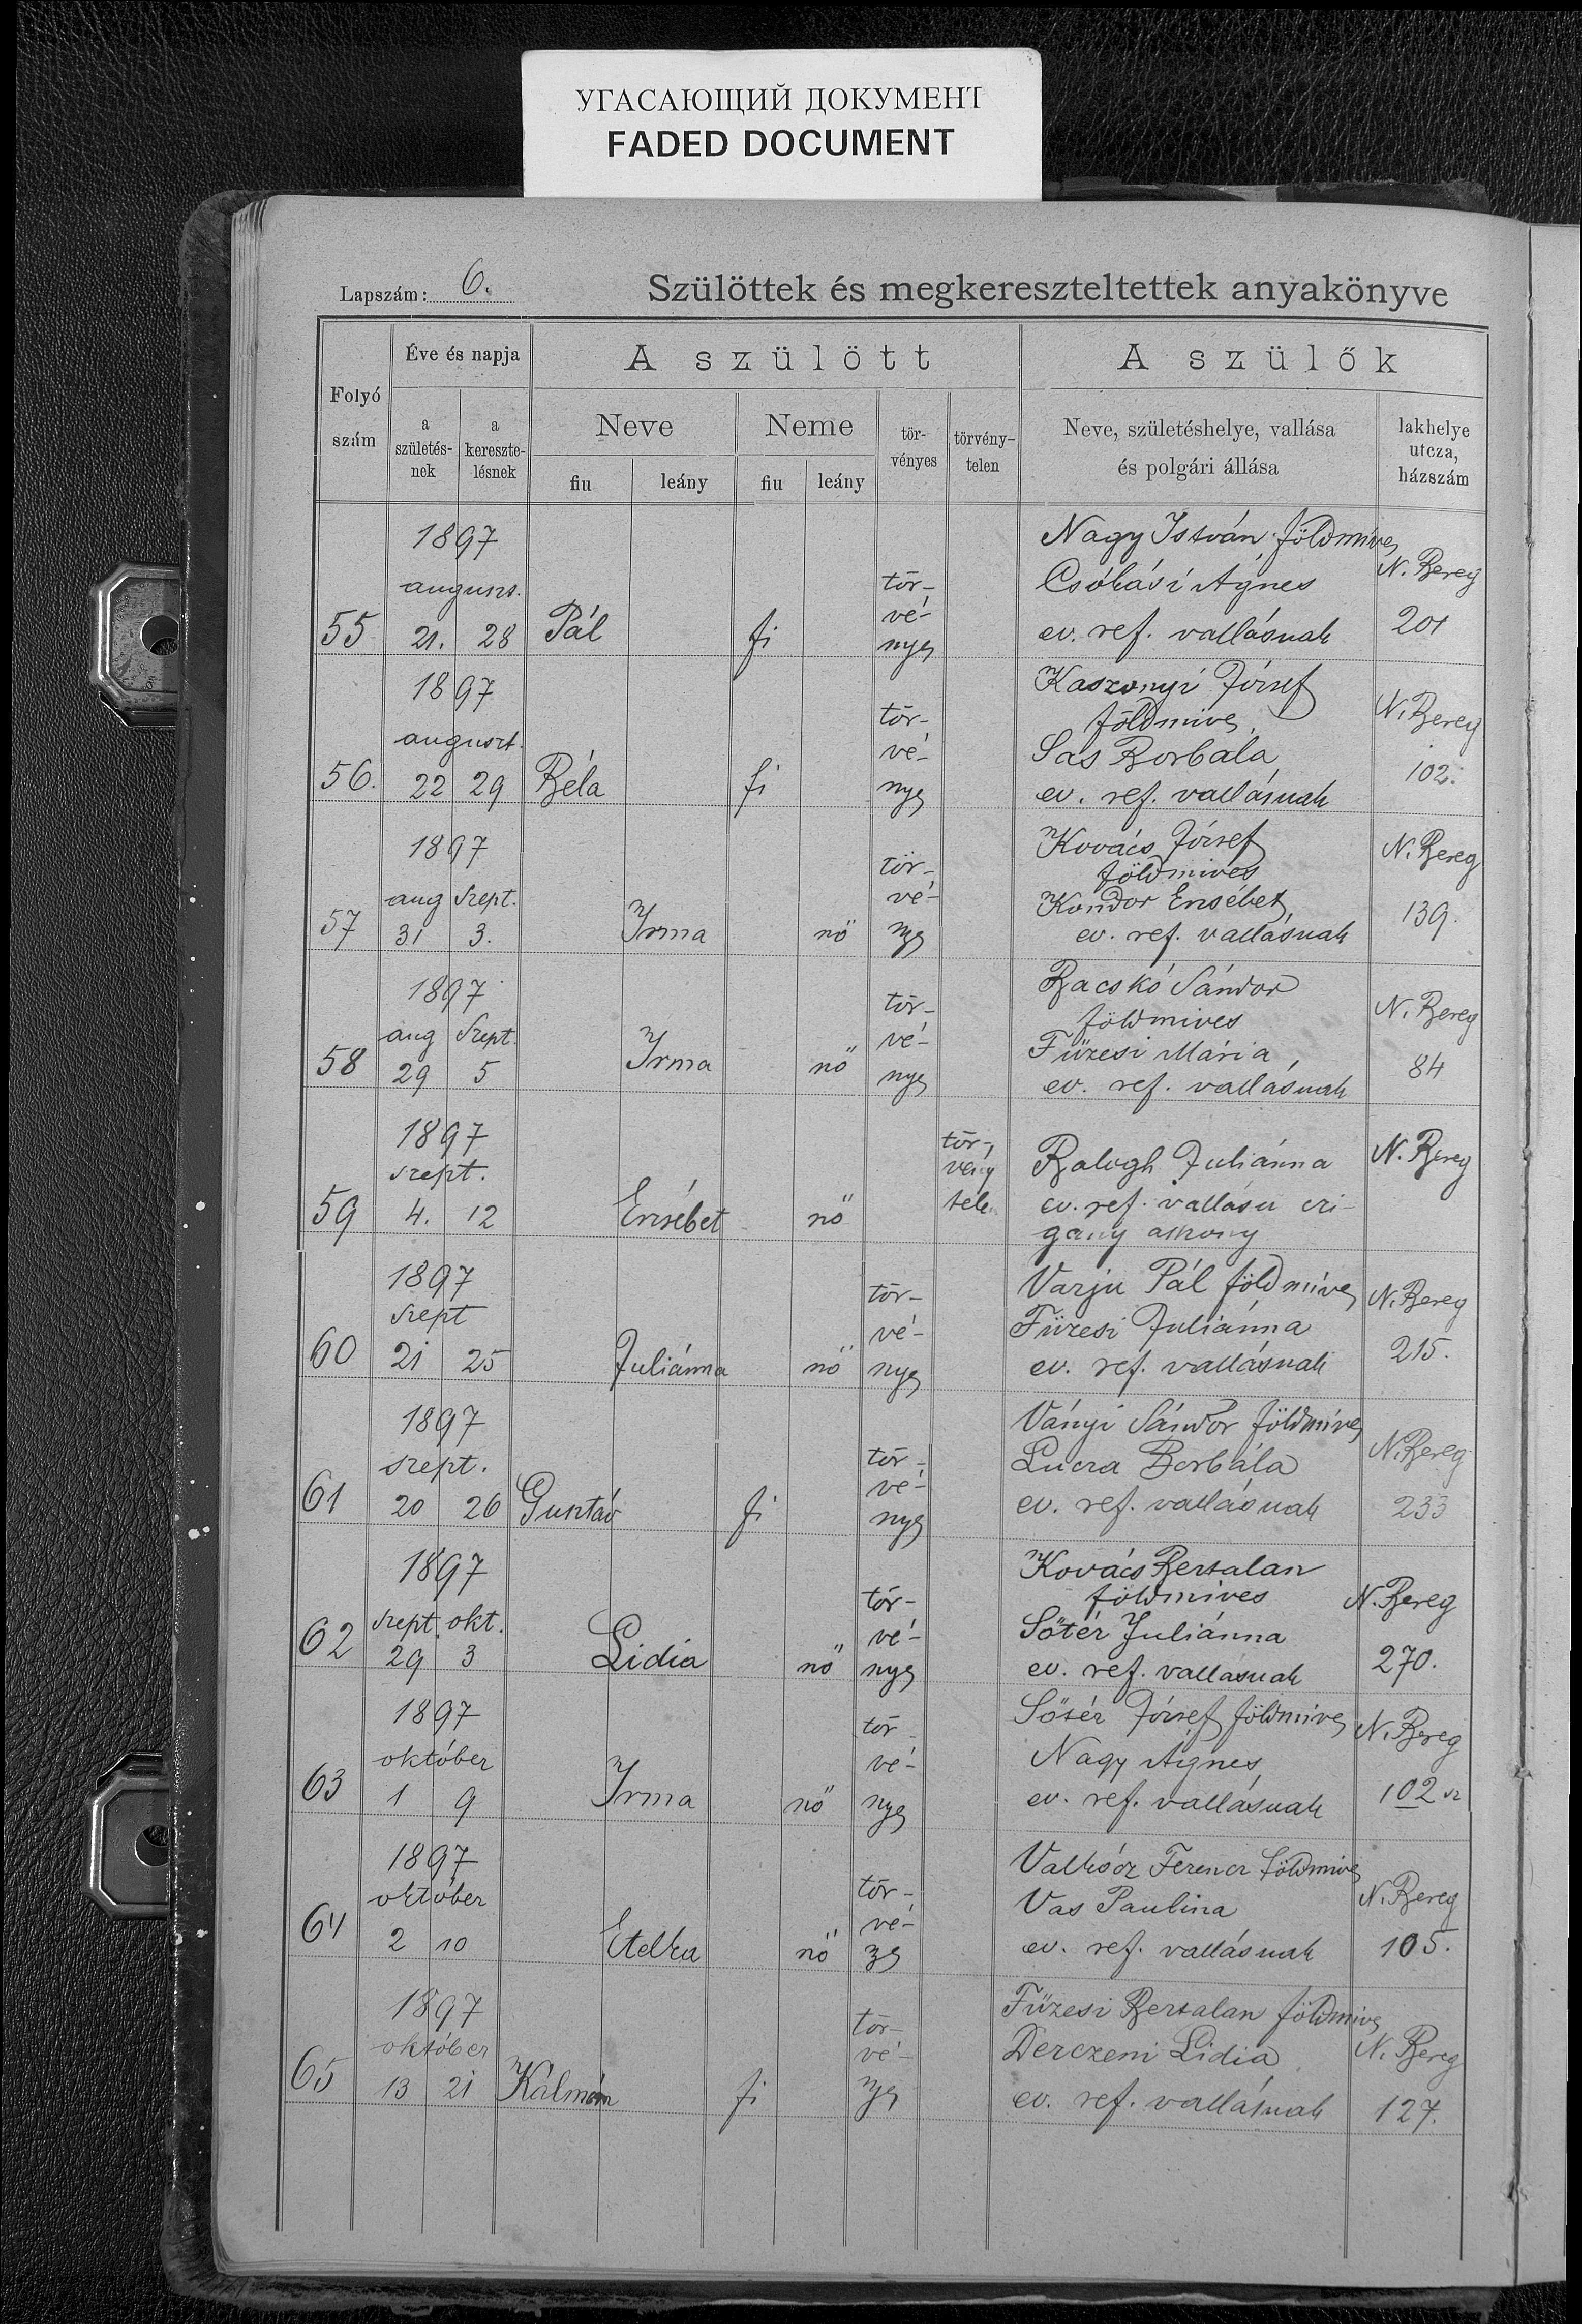 УГАСАЮЩИЙ ДОКУМЕНТ
FADED DOCUMENT
Lapszám: 6.
Szülöttek és megkereszteltettek anyakönyve
Folyó szám
Éve és napja
a születés-nek
a keresztelésnek
A szülött
Neve
fiu
leány
Neme
fiu
leány
tör-vényes
törvény-telen
A szülők
Neve, születéshelye, vallása
és polgári állása
lakhelye
utcza,
házszám
1897
auguszt.
55 21. 28 Pál fi tör-vé-nyes
Nagy István földmíves
Csókási Ágnes
ev. ref. vallásuak
N. Bereg
201
1897
auguszt.
56. 22 29 Béla fi tör-vé-nyes
Kaszonyi József
földmives
Sas Borbála
ev. ref. vallásuak
N. Bereg
102.
1897
aug szept.
57 31 3. Irma nő tör-vé-nyes
Kovács József
földmives
Kondor Erzsébet,
ev. ref. vallásuak
N. Bereg
139.
1897
aug szept.
58 29 5 Irma nő tör-vé-nyes
Bacskó Sándor
földmives
Füzesi Mária,
ev. ref. vallásuak
N. Bereg
84
1897
szept.
59 4. 12 Erzsébet nő tör-vény telen
Balogh Juliánna
ev. ref. vallásu czi-
gány asszony
N. Bereg
1897
szept
60 21 25 Juliánna nő tör-vé-nyes
Varju Pál földmíves
Füzesi Juliánna
ev. ref. vallásuak
N. Bereg
215.
1897
szept.
61 20 26 Gusztáv fi tör-vé-nyes
Ványi Sándor földmíves
Lucza Borbála
ev. ref. vallásuak
N. Bereg
233
1897
szept. okt.
62 29 3 Lidia nő tör-vé-nyes
Kovács Bertalan
földmíves
Sőtér Juliánna
ev. ref. vallásuak
N. Bereg
270.
1897
október
63 1 9 Irma nő tör-vé-nyes
Sőtér József földmíves
Nagy Ágnes,
ev. ref. vallásuak
N. Bereg
102
1897
október
64 2 10 Etelka nő tör-vé-
Valkócz Ferencz földmives
Vas Paulina
ev. ref. vallásuak
N. Bereg
105.
1897
október
65 13 21 Kálmán fi tör-vé-nyes
Füzesi Bertalan földmives
Derczeni Lidia
ev. ref. vallásuak
N. Bereg
127.